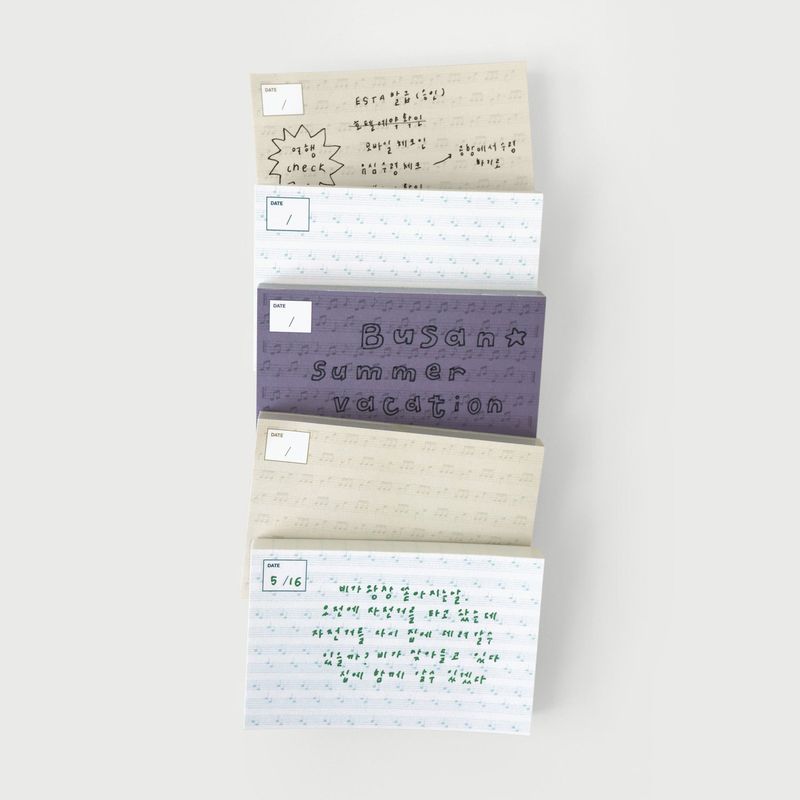 DATE
/
여행
check
ESTA 발급 (승인)
호텔예약확인
모바일 체크인
음심수령 체크
공항에서 수령
하기로
DATE
/
DATE
/
Busan
Summer
vacation
DATE
/
DATE
5/16
비가 왕창 쏟아지는날.
오전에 자전거를 타고 왔는데
자전거를 다시 집에 데려갈수
있을까? 비가 잦아들고 있다
집에 함께 갈수 있겠다